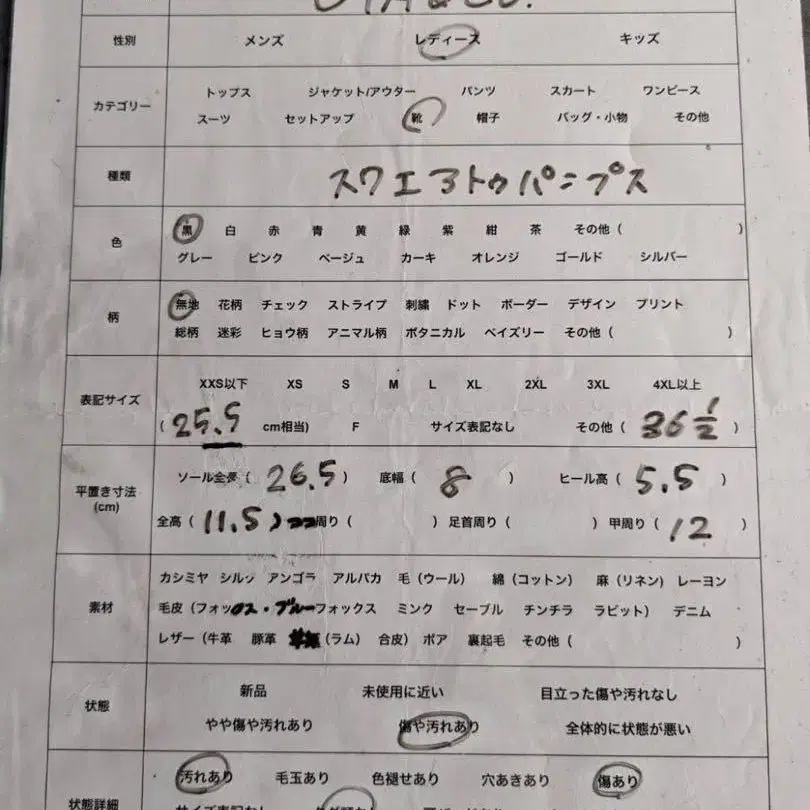 性別 メンズ レディース キッズ
カテゴリー トップス ジャケット/アウター パンツ スカート ワンピース
スーツ セットアップ 靴 帽子 バッグ・小物 その他
種類 スクエアトゥパンプス
色 黒 白 赤 青 黄 緑 紫 紺 茶 その他 ( )
グレー ピンク ベージュ カーキ オレンジ ゴールド シルバー
柄 無地 花柄 チェック ストライプ 刺繍 ドット ボーダー デザイン プリント
総柄 迷彩 ヒョウ柄 アニマル柄 ボタニカル ペイズリー その他 ( )
表記サイズ XXS以下 XS S M L XL 2XL 3XL 4XL以上
( 25.5 cm相当) F サイズ表記なし その他 ( 36 1/2 )
平置き寸法 ソール全長 ( 26.5 ) 底幅 ( 8 ) ヒール高 ( 5.5 )
(cm)
全高 ( 11.5 ) 周り ( ) 足首周り ( ) 甲周り ( 12 )
素材 カシミヤ シルク アンゴラ アルパカ 毛 (ウール) 綿 (コットン) 麻 (リネン) レーヨン
毛皮 (フォックス・ブルーフォックス ミンク セーブル チンチラ ラビット) デニム
レザー (牛革 豚革 (ラム) 合皮) ボア 裏起毛 その他 ( )
状態 新品 未使用に近い 目立った傷や汚れなし
やや傷や汚れあり 傷や汚れあり 全体的に状態が悪い
状態詳細 汚れあり 毛玉あり 色褪せあり 穴あきあり 傷あり